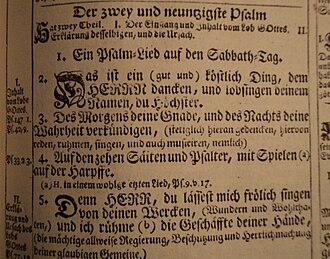 Der zwey und neuntzigste Psalm
Hat zwey Theil. I. Der Eingang und Inhalt vom Lob Gottes. II.
Erklärung desselbigen, und die Ursach.
1. Ein Psalm-Lied auf den Sabbath-Tag.
I.
Inhalt
vom Lobe
Gottes.
2. Das ist ein (gut und) köstlich Ding, dem
HERRN dancken, und lobsingen deinem
Namen, du Höchster.
3. Des Morgens deine Gnade, und des Nachts deine
Wahrheit verkündigen, (stetiglich hieran gedencken, hiervon
reden, rühmen, singen, und auch musiciren, nemlich)
4. Auf den zehen Säiten und Psalter, mit Spielen (a)
auf der Harpffe.
(a) H. in einem wohlgesetzten Lied, Ps. 9. v. 17.
II.
Erklärung
und
Ursach
5. Denn HERR, du lässest mich frölich singen
von deinen Wercken, (Wundern und Wohltha-
ten) und ich rühme (b) die Geschäffte deiner Hände,
(die mächtige allweise Regierung, Beschützung und Herrlichmachung
deiner glaubigen Gemeine.)